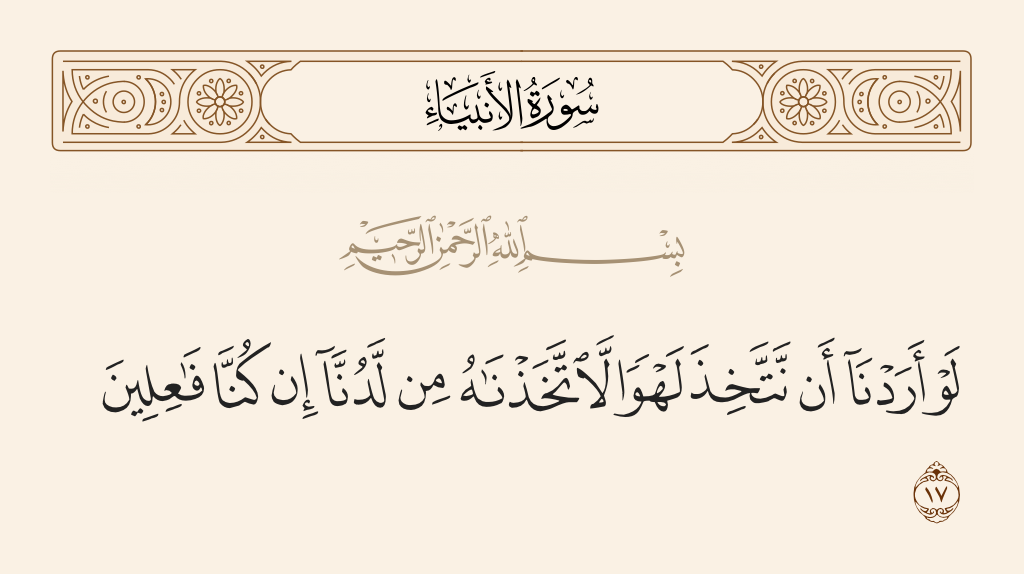 سُورَةُ الأَنبِيَاءِ
بِسْمِ ٱللَّهِ ٱلرَّحْمَٰنِ ٱلرَّحِيمِ
لَوْ أَرَدْنَآ أَن نَّتَّخِذَ لَهْوًا لَّٱتَّخَذْنَٰهُ مِن لَّدُنَّآ إِن كُنَّا فَٰعِلِينَ
١٧